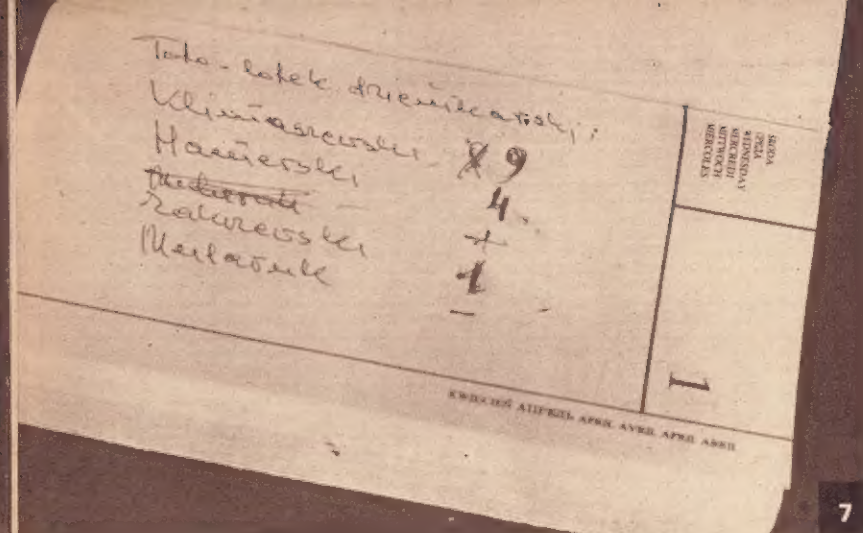 Toto-lotek dziennikarski:
Klimaszewski 9
Hamerski 4
+
Zakrzewski 1
–
ŚRODA
СРЕДА
WEDNESDAY
MERCREDI
MITTWOCH
MIERCOLES
1
KWIECIEŃ АПРЕЛЬ APRIL AVRIL APRIL ABRIL
7